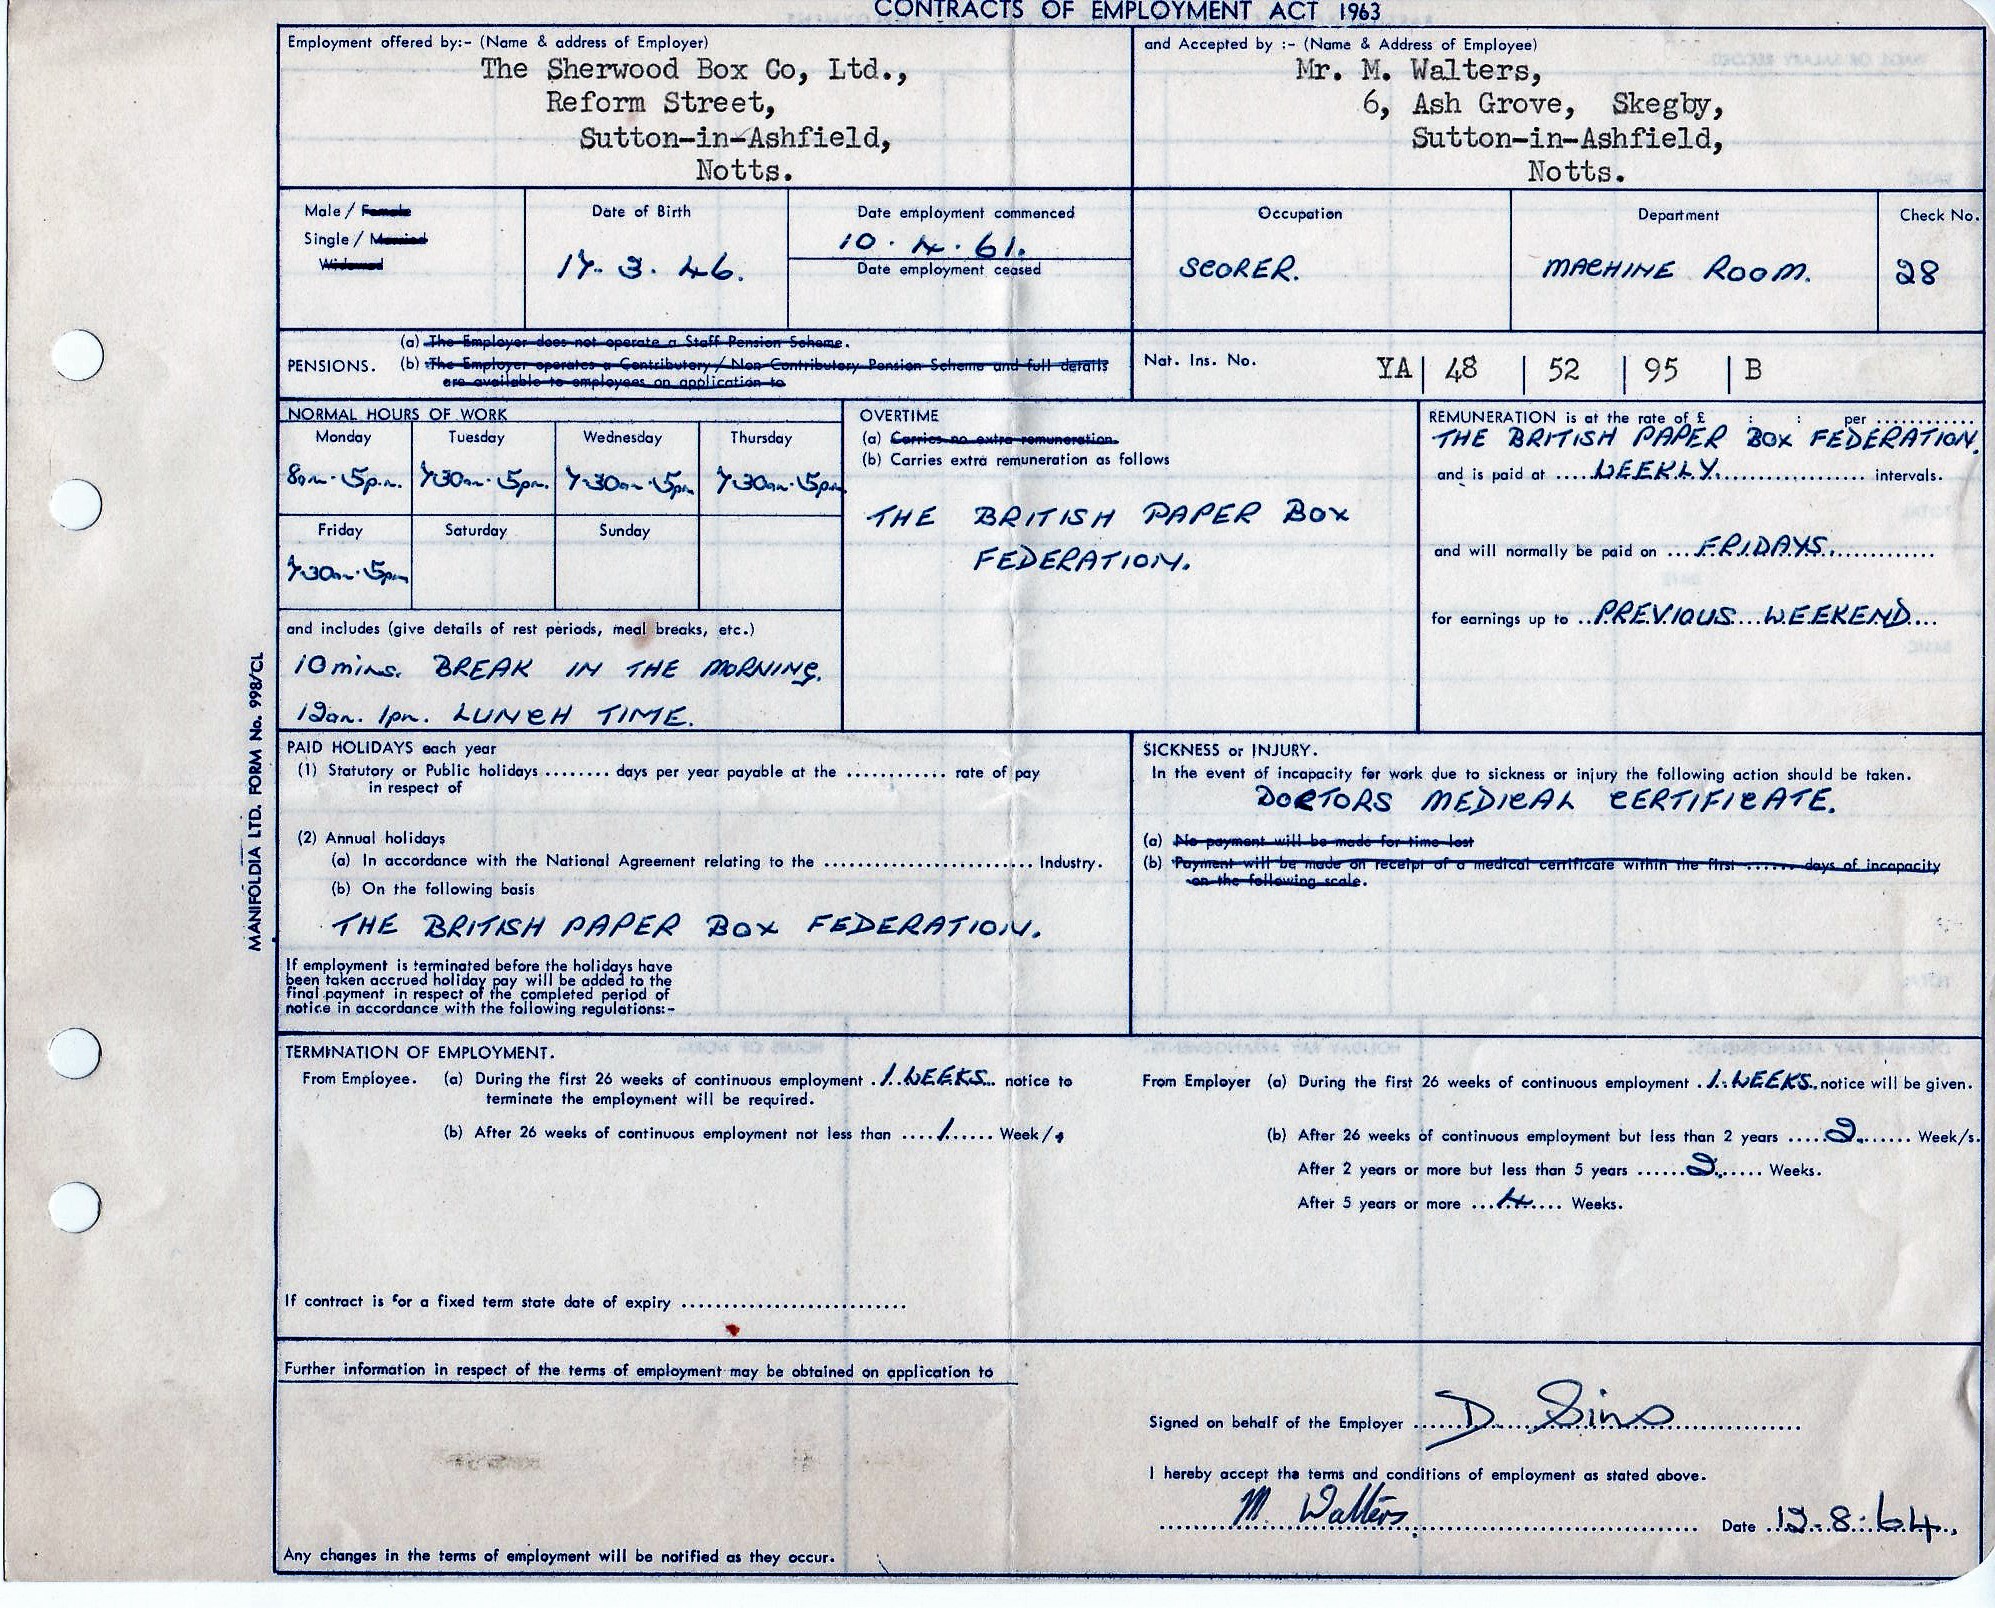 CONTRACTS OF EMPLOYMENT ACT 1963
Employment offered by:- (Name & address of Employer)
The Sherwood Box Co, Ltd.,
Reform Street,
Sutton-in-Ashfield,
Notts.
and Accepted by :- (Name & Address of Employee)
Mr. M. Walters,
6, Ash Grove, Skegby,
Sutton-in-Ashfield,
Notts.
Male / Female
Single / Married
Widowed
Date of Birth
17. 3. 46.
Date employment commenced
10. 4. 61.
Date employment ceased
Occupation
SCORER.
Department
MACHINE ROOM.
Check No.
28
PENSIONS.
(a) The Employer does not operate a Staff Pension Scheme.
(b) The Employer operates a Contributory / Non-Contributory Pension Scheme and full details
are available to employees on application to
Nat. Ins. No. YA | 48 | 52 | 95 | B
NORMAL HOURS OF WORK
Monday Tuesday Wednesday Thursday
8am. 5p.m. 7-30am. 5pm. 7-30am. 5pm 7-30am. 5pm.
Friday Saturday Sunday
7-30am. 5pm
and includes (give details of rest periods, meal breaks, etc.)
10 mins. BREAK IN THE MORNING.
12am. 1pm. LUNCH TIME.
OVERTIME
(a) Carries no extra remuneration.
(b) Carries extra remuneration as follows
THE BRITISH PAPER BOX
FEDERATION.
REMUNERATION is at the rate of £ : : per ............
THE BRITISH PAPER BOX FEDERATION.
and is paid at .....WEEKLY..................... intervals.
and will normally be paid on ...FRIDAYS...............
for earnings up to ..PREVIOUS...WEEKEND....
PAID HOLIDAYS each year
(1) Statutory or Public holidays ........ days per year payable at the ............ rate of pay
in respect of
(2) Annual holidays
(a) In accordance with the National Agreement relating to the .............................. Industry.
(b) On the following basis
THE BRITISH PAPER BOX FEDERATION.
If employment is terminated before the holidays have
been taken accrued holiday pay will be added to the
final payment in respect of the completed period of
notice in accordance with the following regulations:-
SICKNESS or INJURY.
In the event of incapacity for work due to sickness or injury the following action should be taken.
DOCTORS MEDICAL CERTIFICATE.
(a) No payment will be made for time lost
(b) Payment will be made on receipt of a medical certificate within the first ...... days of incapacity
on the following scale.
MANIFOLDIA LTD. FORM No. 998/CL
TERMINATION OF EMPLOYMENT.
From Employee. (a) During the first 26 weeks of continuous employment .1.WEEKS... notice to
terminate the employment will be required.
(b) After 26 weeks of continuous employment not less than .....1...... Week/s
From Employer (a) During the first 26 weeks of continuous employment .1.WEEKS.. notice will be given.
(b) After 26 weeks of continuous employment but less than 2 years .....2....... Week/s.
After 2 years or more but less than 5 years ......2...... Weeks.
After 5 years or more ....4..... Weeks.
If contract is for a fixed term state date of expiry ................................
Further information in respect of the terms of employment may be obtained on application to
Signed on behalf of the Employer ......D. Sims..................
I hereby accept the terms and conditions of employment as stated above.
M. Walters Date 12.8.64.
Any changes in the terms of employment will be notified as they occur.